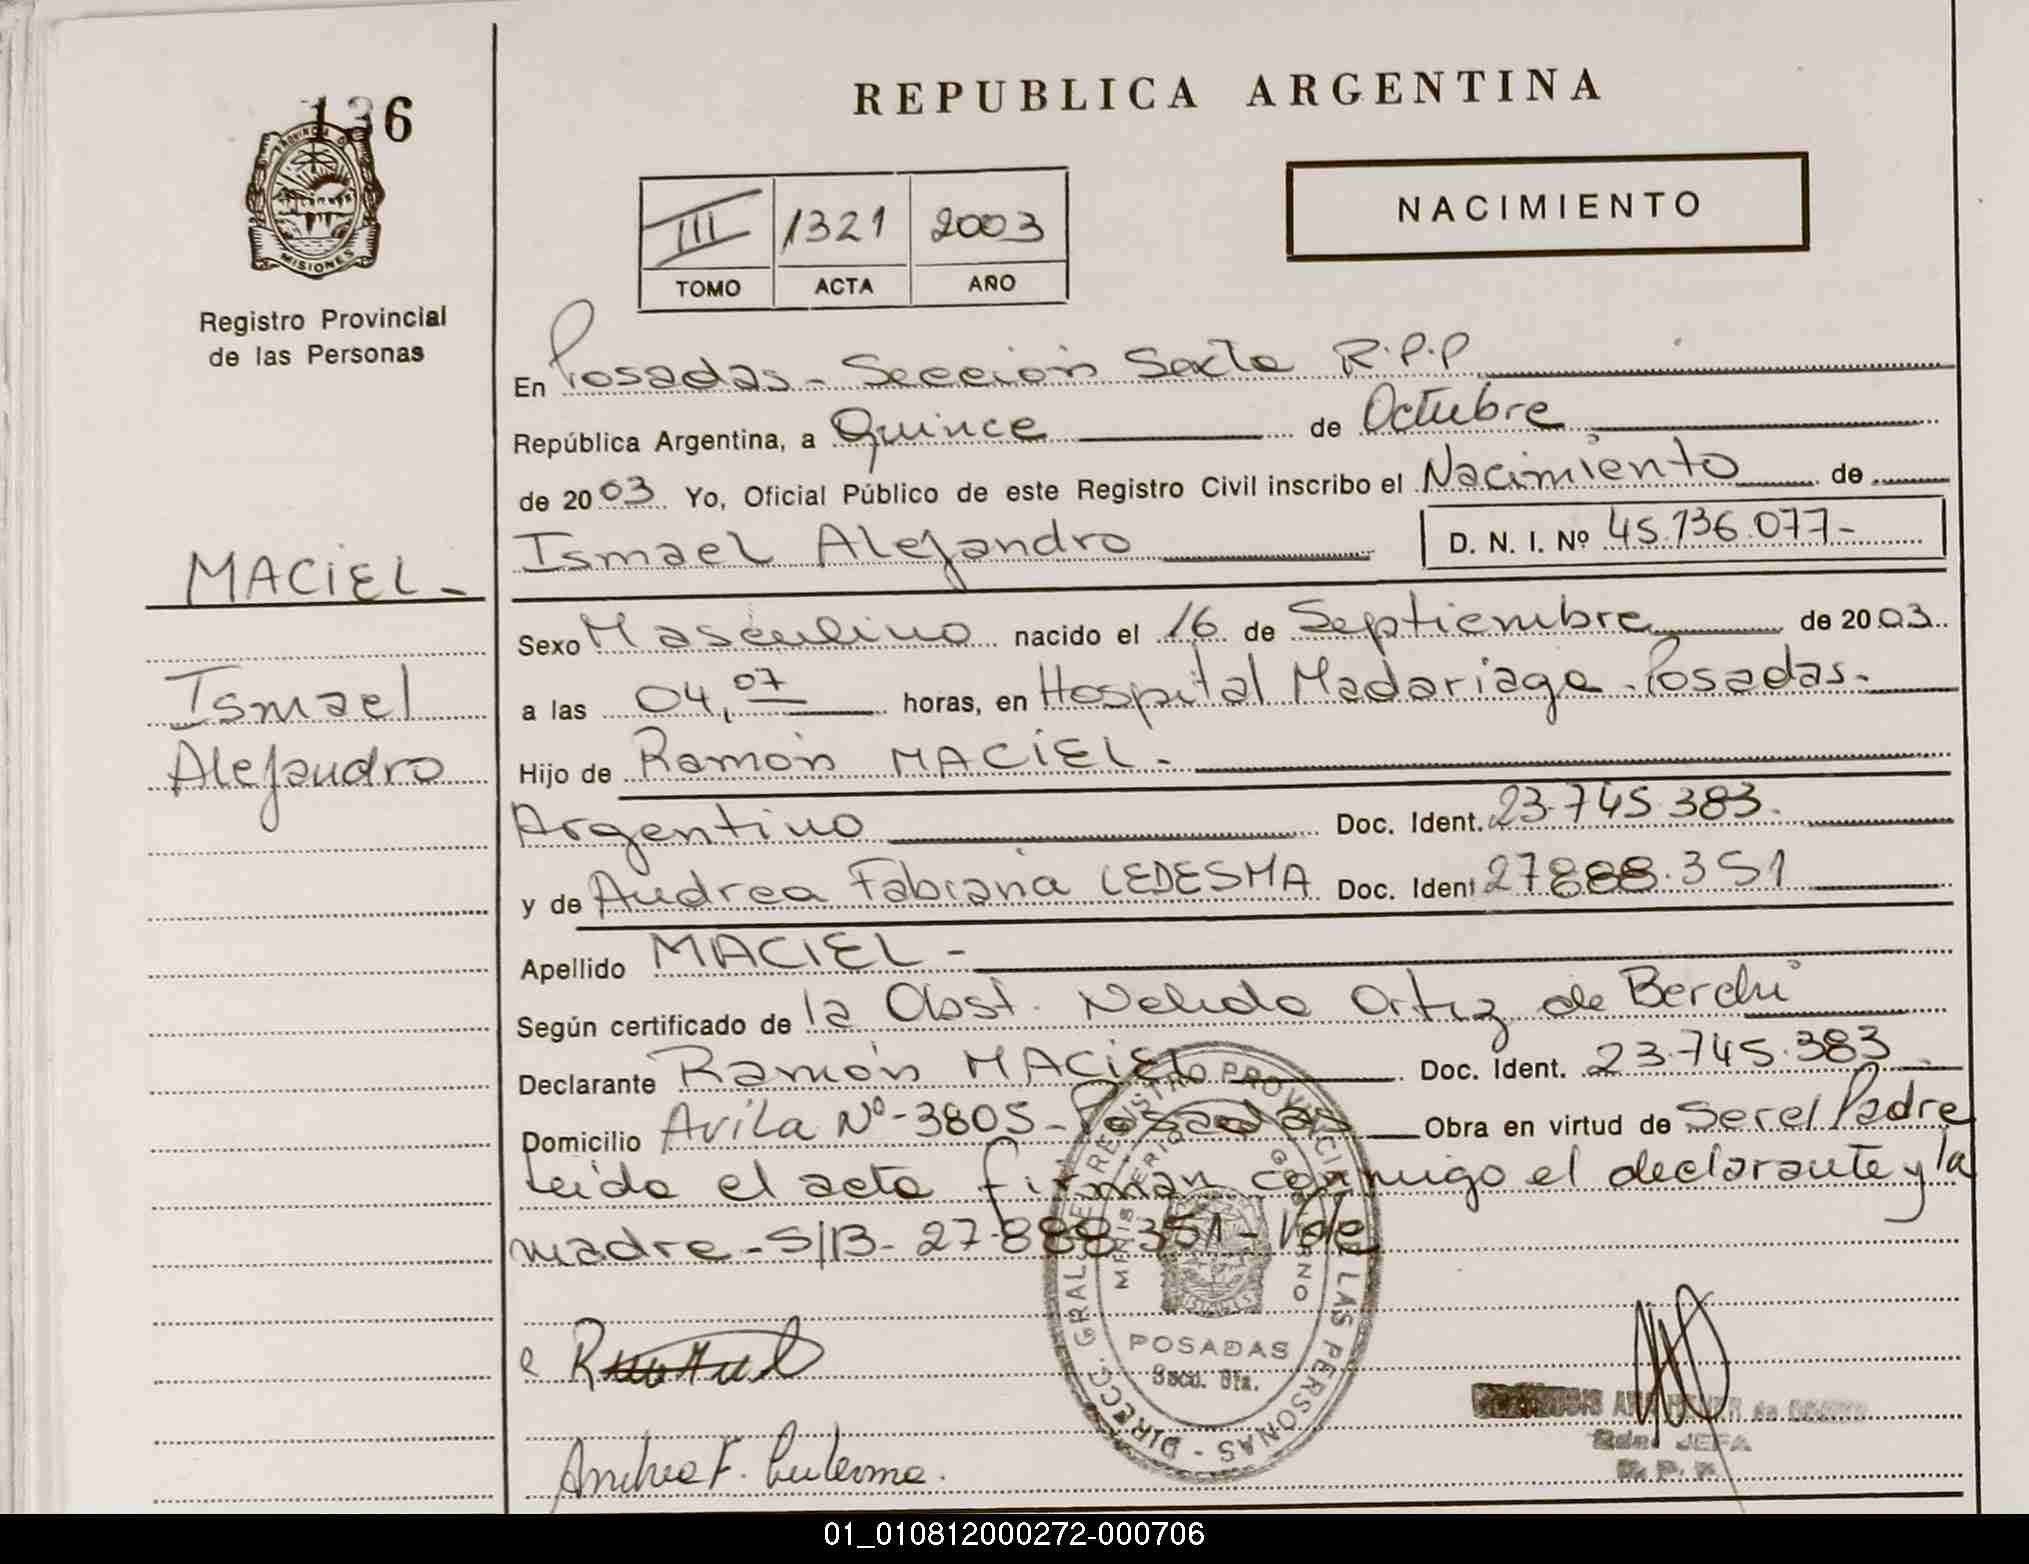 136
PROVINCIA DE
MISIONES
Registro Provincial
de las Personas
MACIEL -
Ismael
Alejandro
REPUBLICA ARGENTINA
III 1321 2003
TOMO ACTA AÑO
NACIMIENTO
En Posadas - Sección Sexta R.P.P
República Argentina, a Quince de Octubre
de 2003 Yo, Oficial Público de este Registro Civil inscribo el Nacimiento de
Ismael Alejandro D. N. I. Nº 45.136.077-
Sexo Masculino nacido el 16 de Septiembre de 2003
a las 04,07 horas, en Hospital Madariaga - Posadas -
Hijo de Ramón MACIEL -
Argentino Doc. Ident. 23.745.383.
y de Andrea Fabiana LEDESMA Doc. Ident 27888.351
Apellido MACIEL -
Según certificado de la Obst. Nelida Ortiz de Berchi
Declarante Ramón MACIEL Doc. Ident. 23.745.383
Domicilio Avila Nº - 3805 - Posadas Obra en virtud de Ser el Padre
Leida el acta firman conmigo el declarante y la
madre - S/B - 27.888.351 - Vale
DIRECC. GRAL. DE REGISTRO PROVINCIAL DE LAS PERSONAS
MINISTERIO GOBIERNO
POSADAS
Secc. 6ta.
Andrea F. Ledesma.
JEFA
R. P. P.
01_010812000272-000706